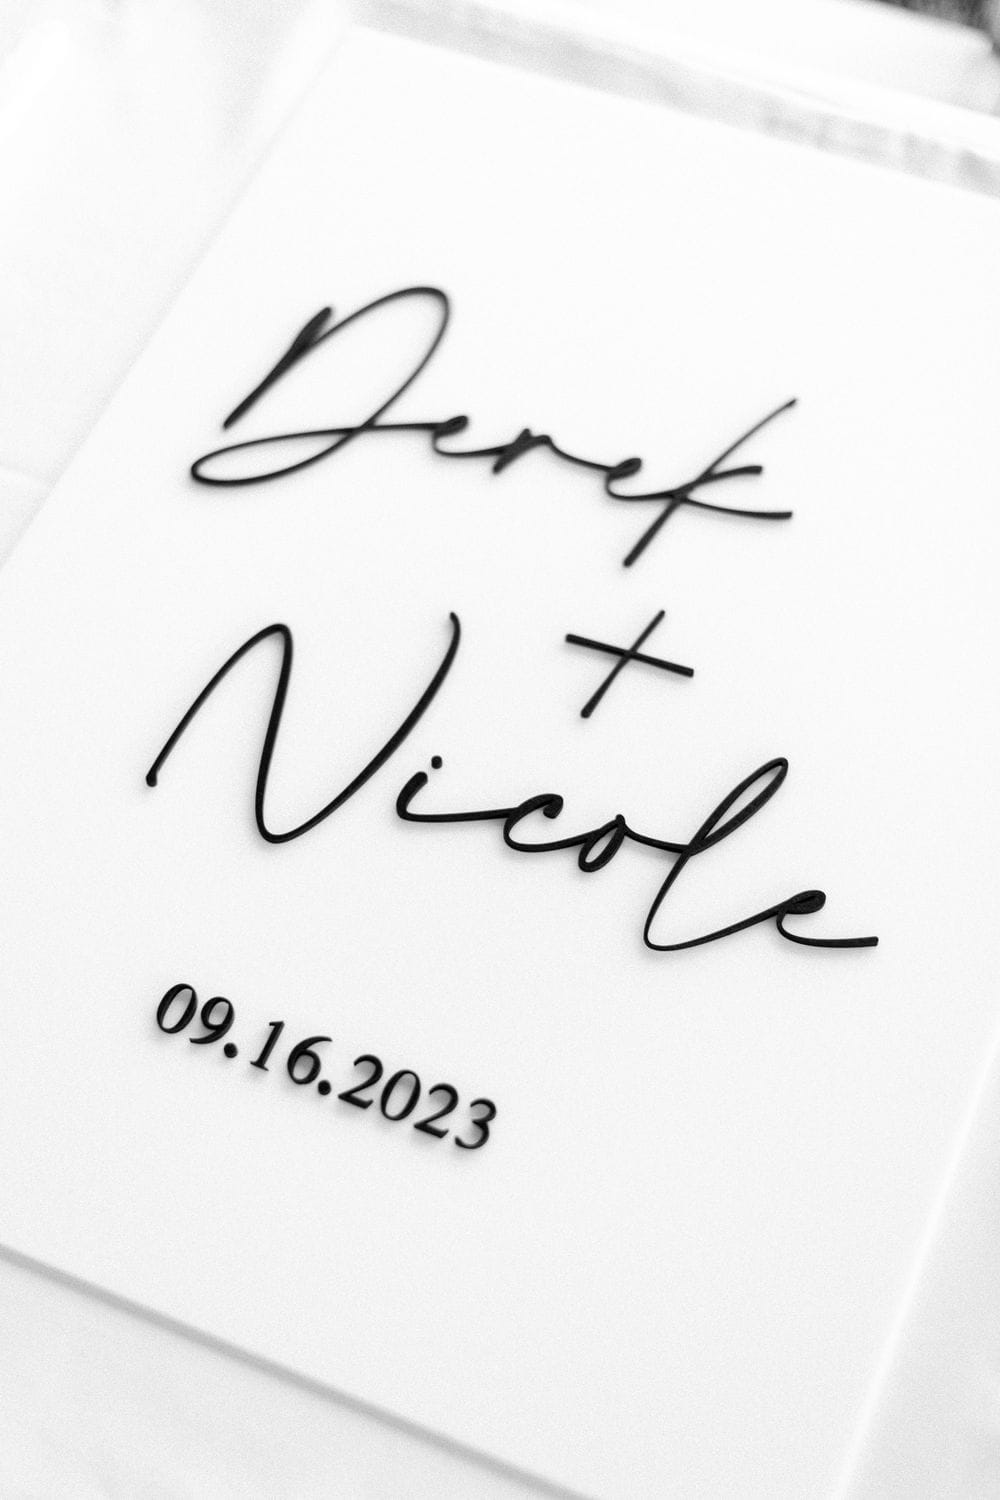 Derek
+
Nicole
09.16.2023